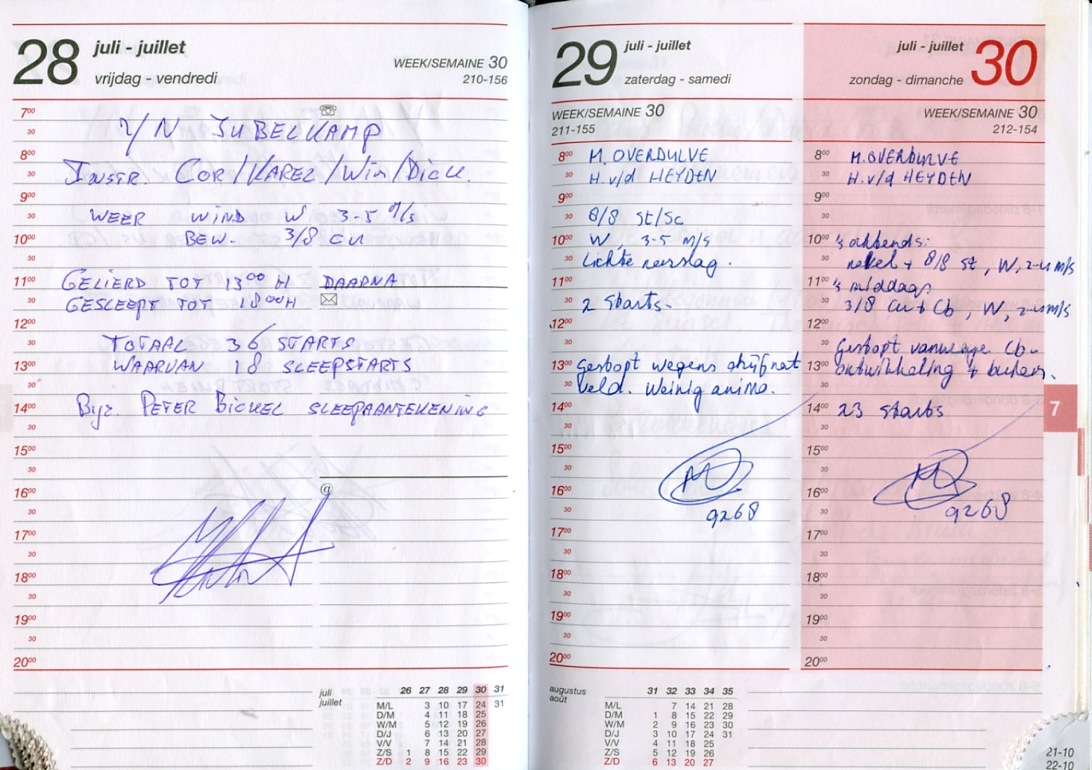 28 juli - juillet
vrijdag - vendredi
WEEK/SEMAINE 30
210-156
7⁰⁰
30 Y/N JUBELKAMP
8⁰⁰ INSTR. COR/KAREL/Wim/DICK.
30
9⁰⁰
30 WEER WIND W 3-5 M/S
10⁰⁰ BEW. 3/8 CU
30
11⁰⁰ GELIERD TOT 13⁰⁰ H DAARNA
30 GESLEEPT TOT 18⁰⁰H
12⁰⁰
30 TOTAAL 36 STARTS
13⁰⁰ WAARVAN 18 SLEEPSTARTS
30
14⁰⁰ Byz. PETER BICKEL SLEEPAANTEKENING
30
15⁰⁰
30
16⁰⁰ @
30
17⁰⁰
30
18⁰⁰
30
19⁰⁰
30
20⁰⁰
juli
juillet
26 27 28 29 30 31
M/L 3 10 17 24 31
D/M 4 11 18 25
W/M 5 12 19 26
D/J 6 13 20 27
V/V 7 14 21 28
Z/S 1 8 15 22 29
Z/D 2 9 16 23 30
29 juli - juillet
zaterdag - samedi
WEEK/SEMAINE 30
211-155
8⁰⁰ M. OVERDULVE
30 H. v/d HEYDEN
9⁰⁰
30 8/8 St/Sc
10⁰⁰ W, 3-5 m/s
30 Lichte neerslag.
11⁰⁰
30 2 starts.
12⁰⁰
30
13⁰⁰ Gestopt wegens drijfnat
30 veld. Weinig animo.
14⁰⁰
30
15⁰⁰
30
16⁰⁰
30 9268
17⁰⁰
30
18⁰⁰
30
19⁰⁰
30
20⁰⁰
augustus
août
31 32 33 34 35
M/L 7 14 21 28
D/M 1 8 15 22 29
W/M 2 9 16 23 30
D/J 3 10 17 24 31
V/V 4 11 18 25
Z/S 5 12 19 26
Z/D 6 13 20 27
juli - juillet 30
zondag - dimanche
WEEK/SEMAINE 30
212-154
8⁰⁰ M. OVERDULVE
30 H. v/d HEYDEN
9⁰⁰
30
10⁰⁰ 's ochtends:
30 nevel + 8/8 St, W, 2-4 m/s
11⁰⁰ 's middags:
30 3/8 Cu + Cb, W, 2-4 m/s
12⁰⁰
30 Gestopt vanwege Cb-
13⁰⁰ ontwikkeling + buien.
30
14⁰⁰ 23 starts
30
15⁰⁰
30
16⁰⁰
30 9268
17⁰⁰
30
18⁰⁰
30
19⁰⁰
30
20⁰⁰
7
21-10
22-10